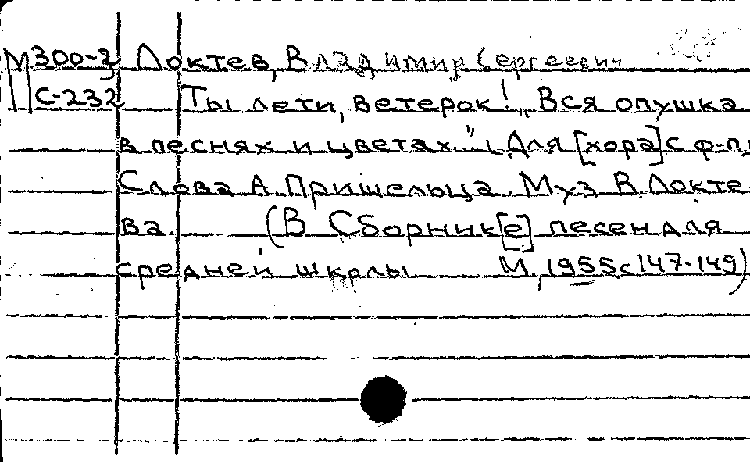 М300-3 Локтев, Владимир Сергеевич
С-232 Ты лети, ветерок! „Вся опушка
в песнях и цветах..." Для [хора] с ф-п.
Слова А. Пришельца. Муз. В. Локте
ва. (В Сборник[е] песен для
средней школы М., 1955 с 147-149)